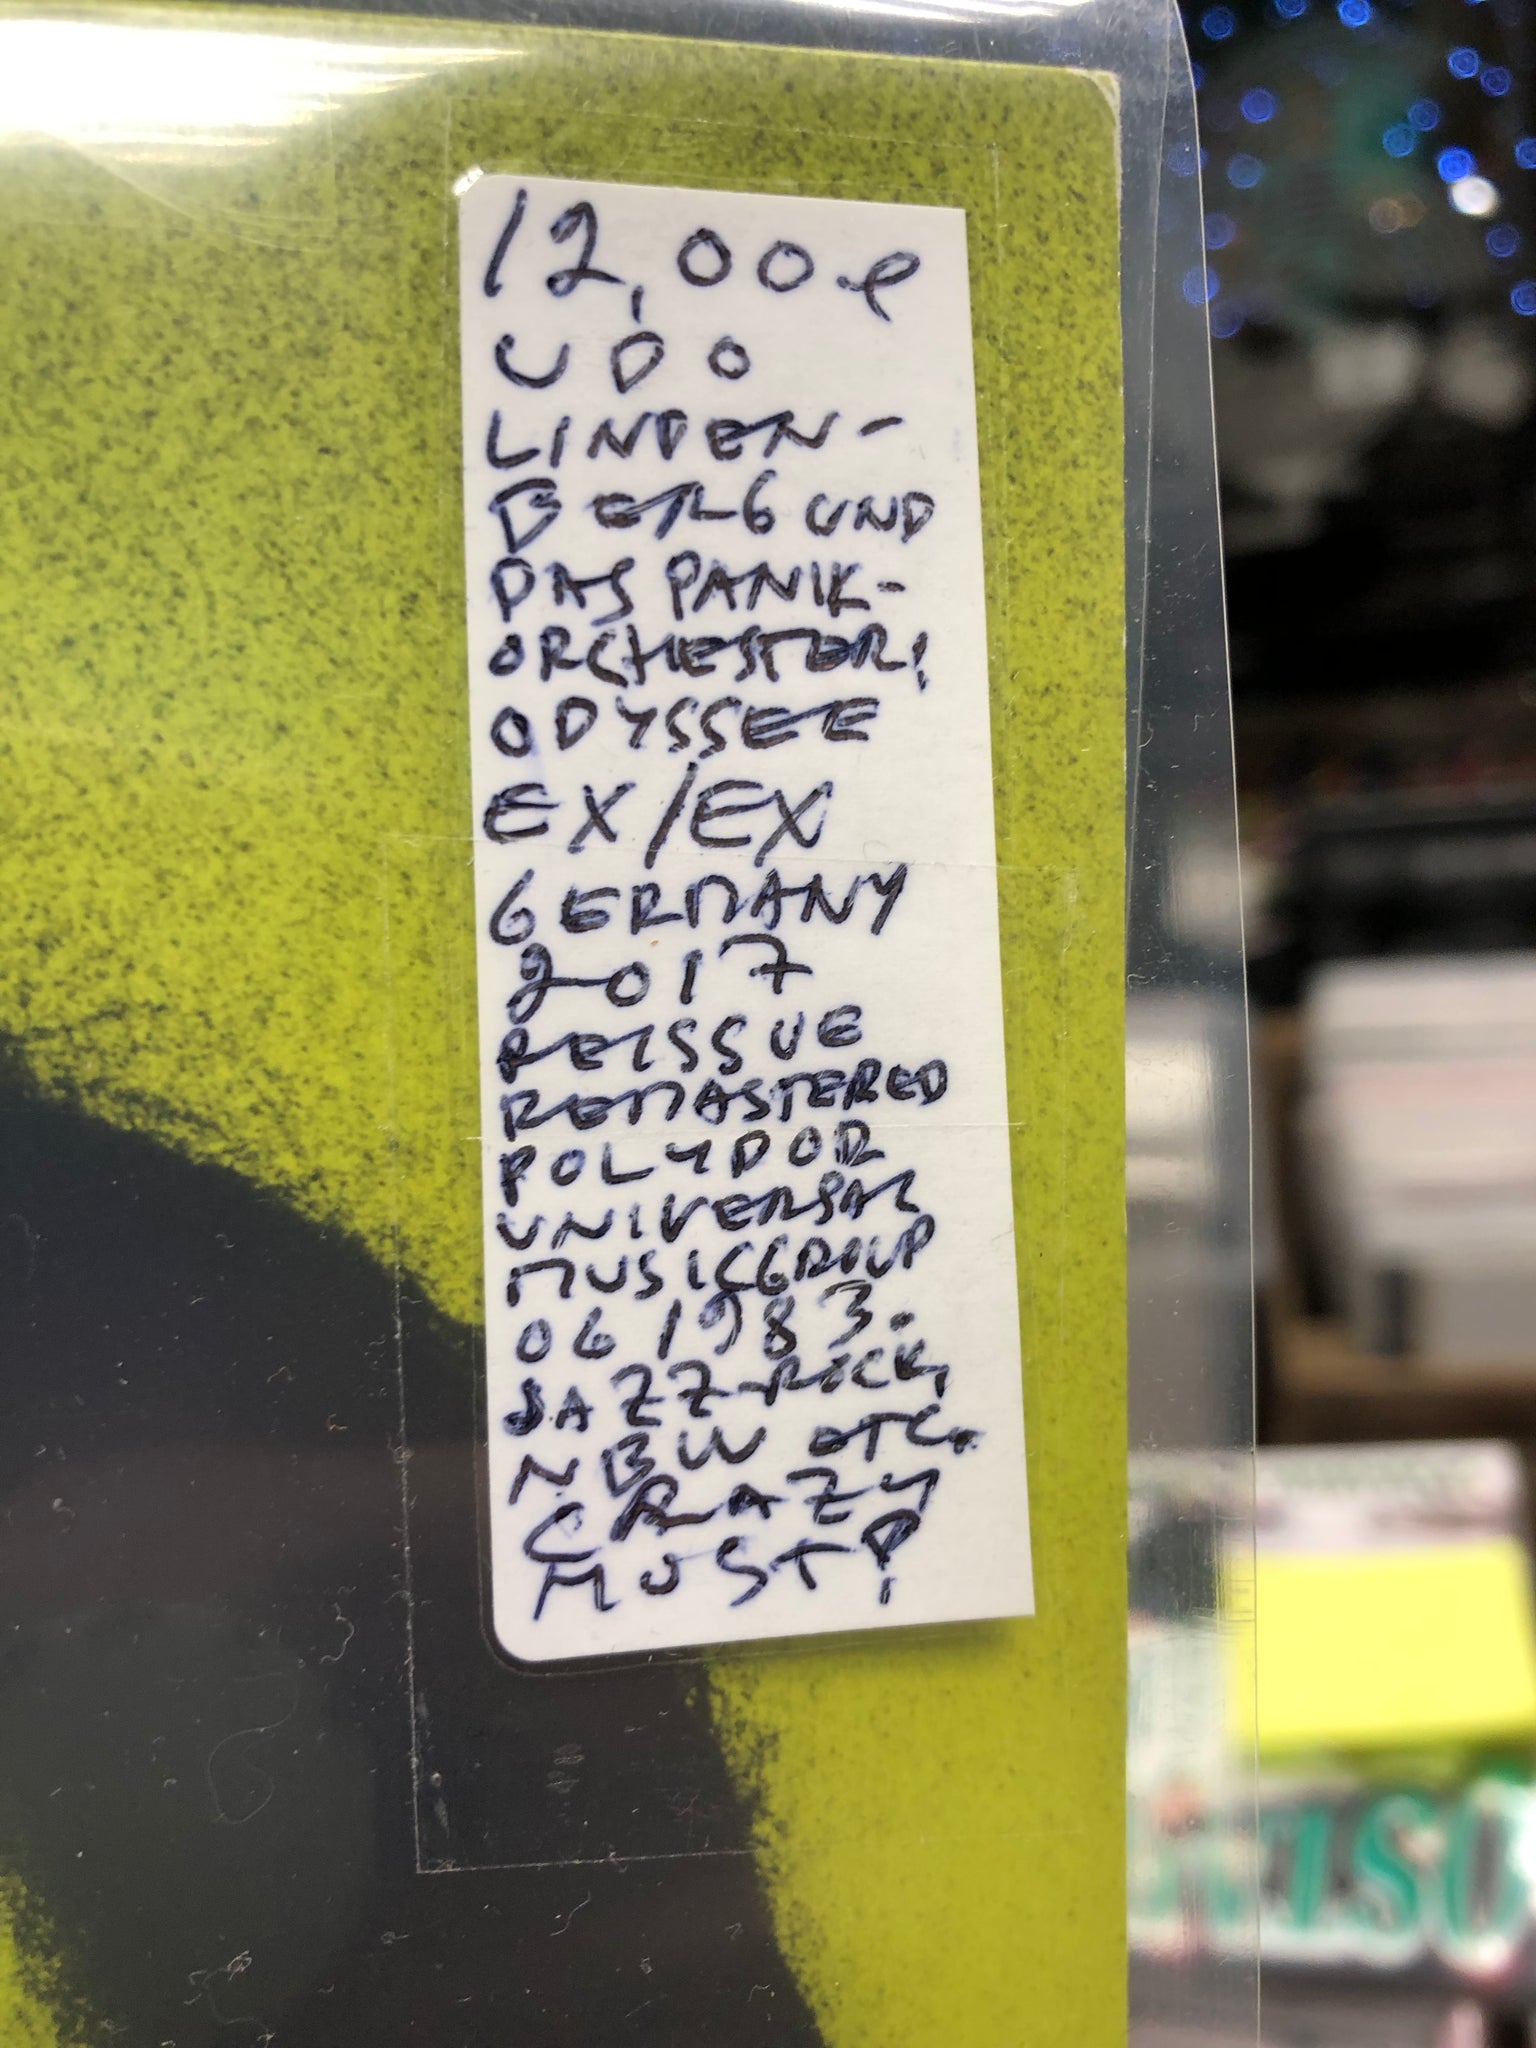 12,00e
UDO
LINDEN-
BERG UND
DAS PANIK-
ORCHESTER!
ODYSSEE
EX/EX
GERMANY
2017
REISSUE
REMASTERED
POLYDOR
UNIVERSAL
MUSICGROUP
06 1983.
JAZZ-ROCK,
NBW ETC.
CRAZY
MUST!